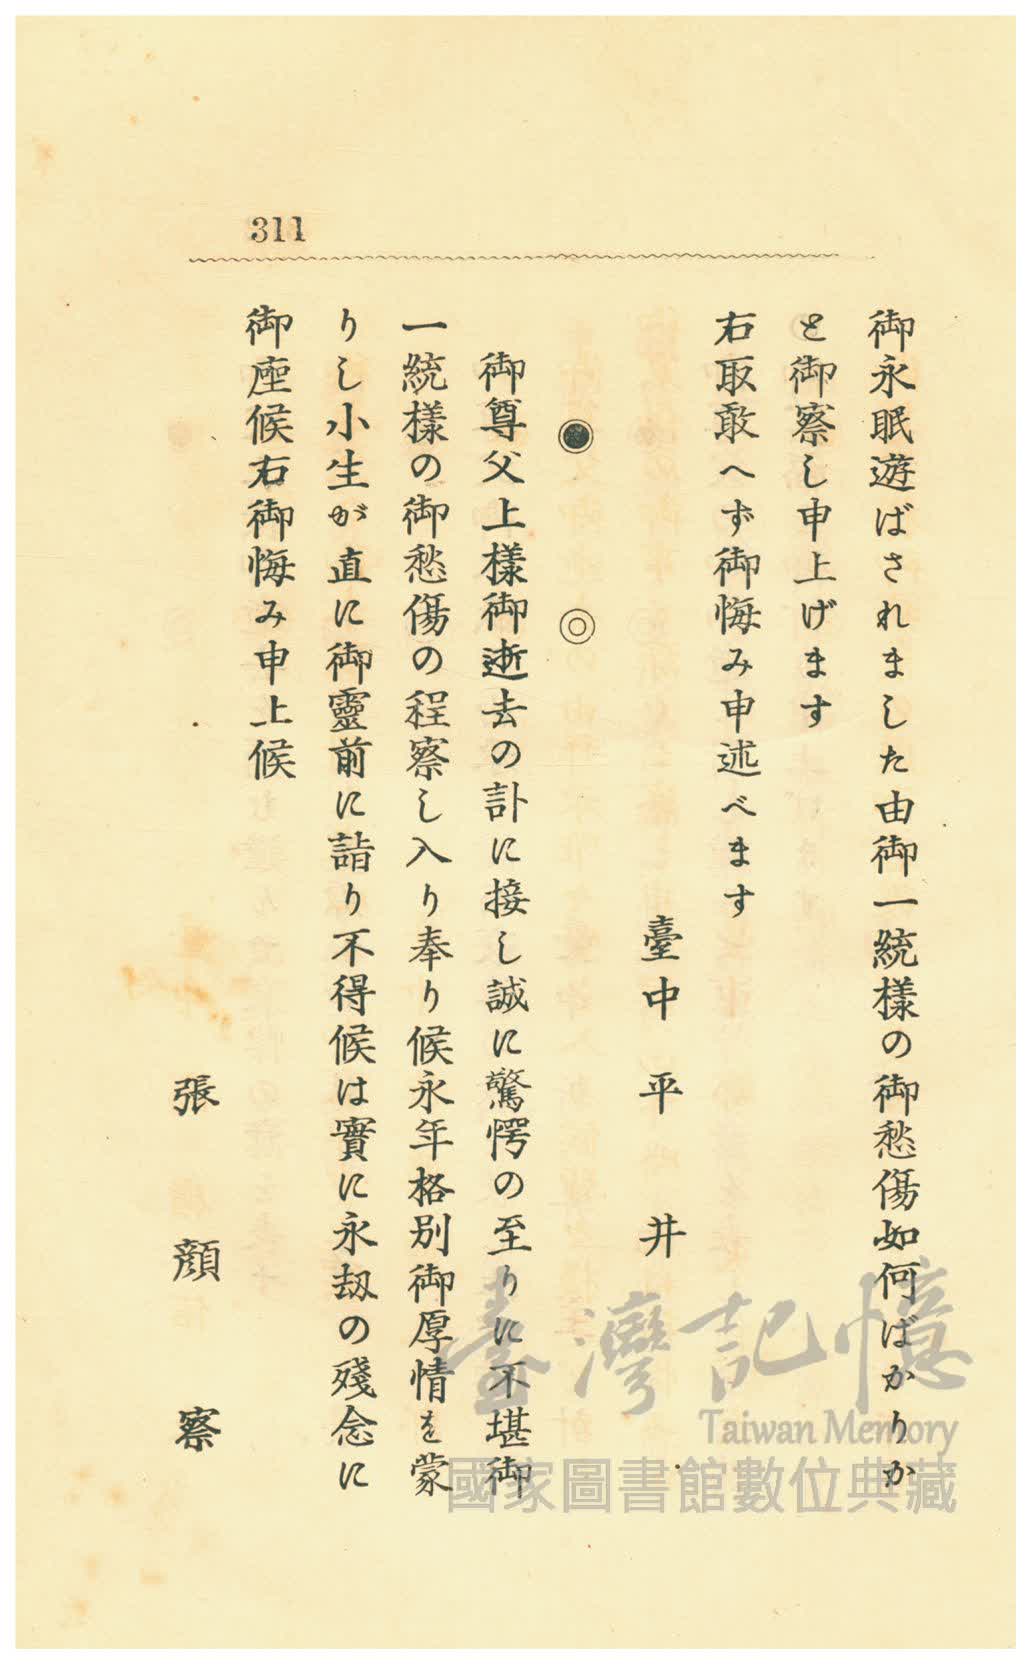 311
御永眠遊ばされました由御一統樣の御愁傷如何ばかりか
と御察し申上げます
右取敢へず御悔み申述べます
臺中 平井
◉ ◎
御尊父上樣御逝去の訃に接し誠に驚愕の至りに不堪御
一統樣の御愁傷の程察し入り奉り候永年格別御厚情を蒙
りし小生が直に御靈前に詣り不得候は實に永劫の殘念に
御座候右御悔み申上候
張顔察
臺灣記憶
Taiwan Memory
國家圖書館數位典藏